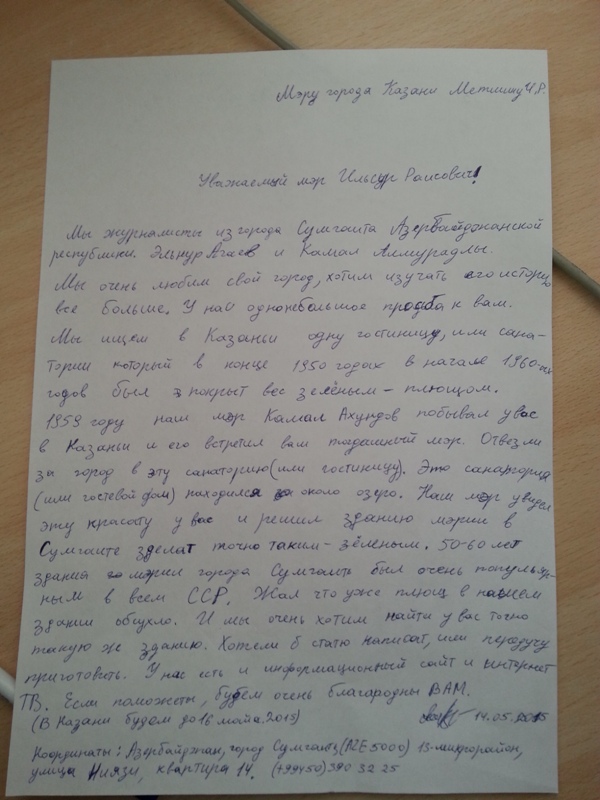 Мэру города Казани Метшину И.Р.
Уважаемый мэр Ильсур Раисович!
Мы журналисты из города Сумгаита Азербайджанской
республики. Эльнур Агаев и Камал Алмурадлы.
Мы очень любим свой город, хотим изучать его историю
все больше. У нас одно небольшое просба к вам.
Мы ищем в Казаньи одну гостиницу, или сана-
торий который в конце 1950 годах в начале 1960-ых
годов был покрыт вес зелёным - плющом.
1959 году наш мэр Камал Ахундов побывал у вас
в Казаньи и его встретил ваш тогдашный мэр. Отвезли
за город в эту санаторию (или гостиницу). Это санатория
(или гостевой дом) находился около озеро. Наш мэр увидел
эту красоту у вас и решил зданию мэрии в
Сумгаите зделат точно таким - зелёным. 50-60 лет
здания мэрии города Сумгаить был очень популяр-
ным в всем ССР. Жал что уже плющ в нашем
здании обсухло. И мы очень хотим найти у вас точно
такую ж зданию. Хотели б статю написат, или передучу
приготовить. У нас есть и информационный сайт и интернет
ТВ. Если поможеты, будем очень благородны ВАМ.
(В Казани будем до 16 мая. 2015) 14.05.2015
Координаты: Азербайджан, город Сумгаить (AZE 5000) 13-микрорайон,
улица Ниязи, квартира 14. (+99450) 390 32 25